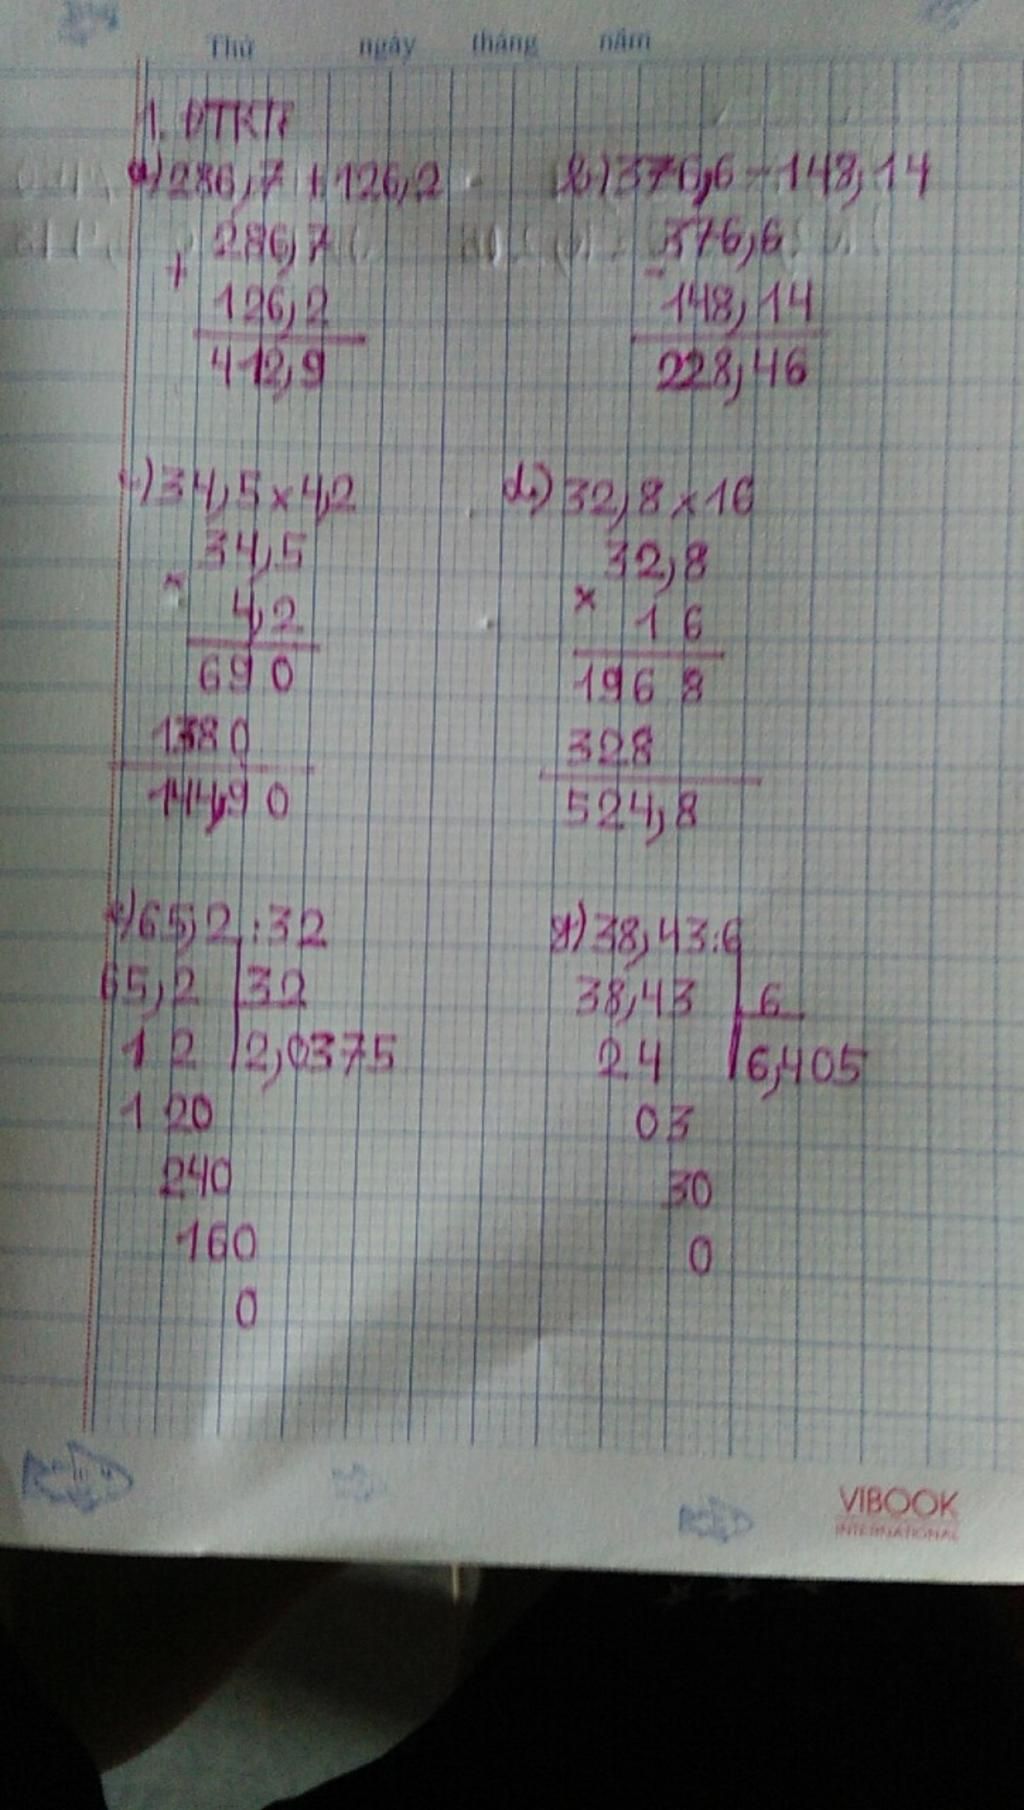 Thứ ngày tháng năm
1. ĐTRIT
a) 286,7 + 126,2
286,7
+
126,2
412,9
b) 376,6 - 148,14
376,6
-
148,14
228,46
c) 34,5 x 4,2
34,5
x
4,2
69 0
1380
144,9 0
d) 32,8 x 16
32,8
x
1 6
196 8
328
524,8
e) 65,2 : 32
65,2 32
1 2 2,0375
1 20
240
160
0
g) 38,43 : 6
38,43 6
24 6,405
03
30
0
VIBOOK
INTERNATIONAL